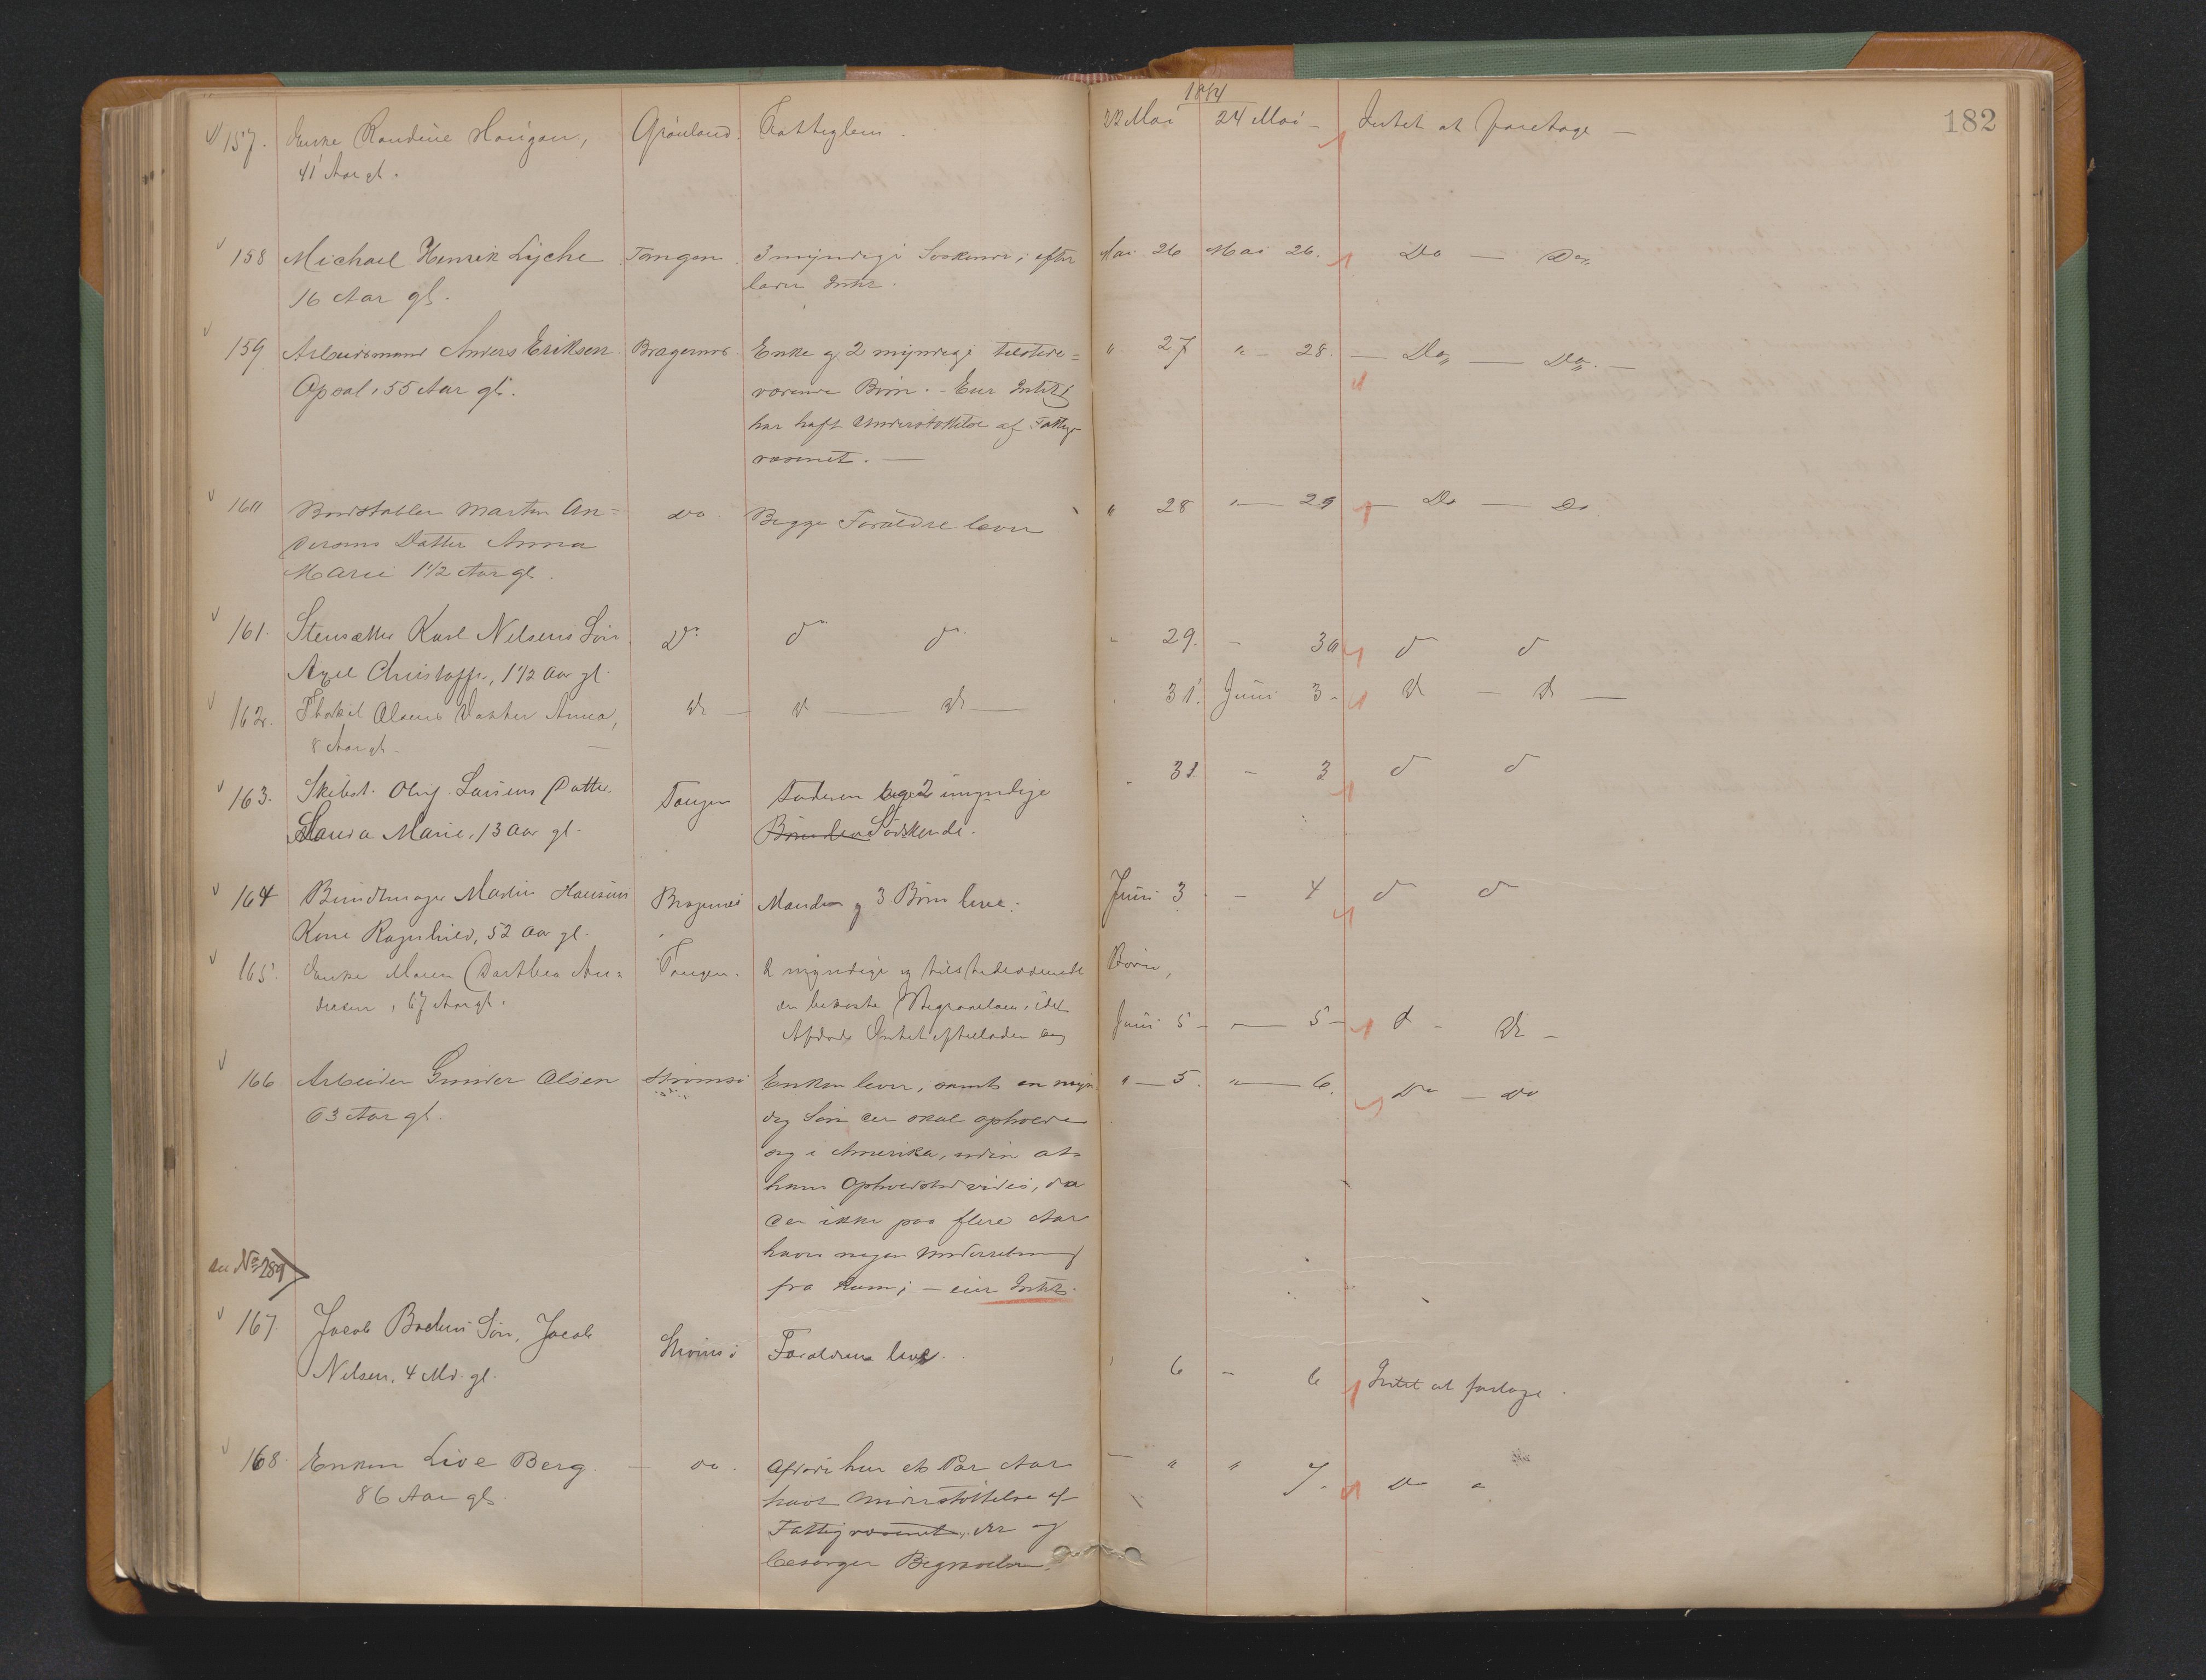 1884
182
157. Enke Randine Haugan, Grønland. Fattiglem. 22 Mai 24 Mai Intet at foretage
41 Aar gl.
158 Michael Henrik Lyche Tangen. 3 myndige Søskende; efter Mai 26 Mai 26. Do Do
16 Aar gl. lader Intet.
159 Arbeidsmand Anders Eriksen Bragernes Enke og 2 myndige tilstede= " 27 " 28. Do Do
Opsal, 55 Aar gl. værende Børn. - Eier Intet;
har haft Understøttelse af Fattig
væsenet.
160 Bordstabler Martin An= do. Begge Forældre lever " 28 " 29 Do Do.
dersens Datter Anna
Marie 1 1/2 Aar gl.
161. Stensætter Karl Nilsens Søn Do d d - 29. - 30 d d
Axel Christoffer, 1 1/2 Aar gl.
162. Thorkil Olsens Datter Anna, do do do 31. Juni 3 do do
8 Aar gl.
163. Skibst. Oluf Larsens Datter Tangen Faderen og 2 umyndige - 31. - 3 d d
Laura Marie, 13 Aar gl. Søskende.
164 Bundtmager Martin Hansens Bragernes Manden og 3 Børn lever. Juni 3 - 4 d d
Kone Ragnhild, 52 Aar gl.
165. Enke Maren Dorthea An= Tangen. 2 myndige og tilstedeværende Børn,
dresen, 67 Aar gl. en bekoste Begravelsen, idet
Afdøde Intet efterlader sig Juni 5 - 5 d do
166 Arbeider Gunder Olsen Strømsø Enken lever, samt en myn " 5. " 6. Do do
63 Aar gl. dig Søn der skal opholde
sig i Amerika, uden at
hans Opholdsted vides, da
der ikke paa flere Aar
haves nogen Underretning
fra ham; - eier Intet.
se No 289
167. Jacob Søn, Jacob Strømsø Forældrene lever. 6 - 6 Intet at foretage.
Nilsen, 4 Md. gl.
168. Enken Live Berg do. Afdøde har et Par Aar " " 7. Do "
86 Aar gl. havt Understøttelse af
Fattigvæsenet, der og
besørger Begravelsen.